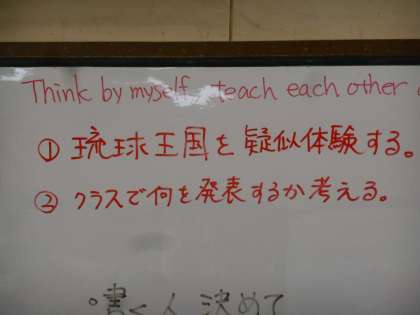 Think by myself, teach each other
① 琉球王国を疑似体験する。
② クラスで何を発表するか考える。
。書く人 決めて